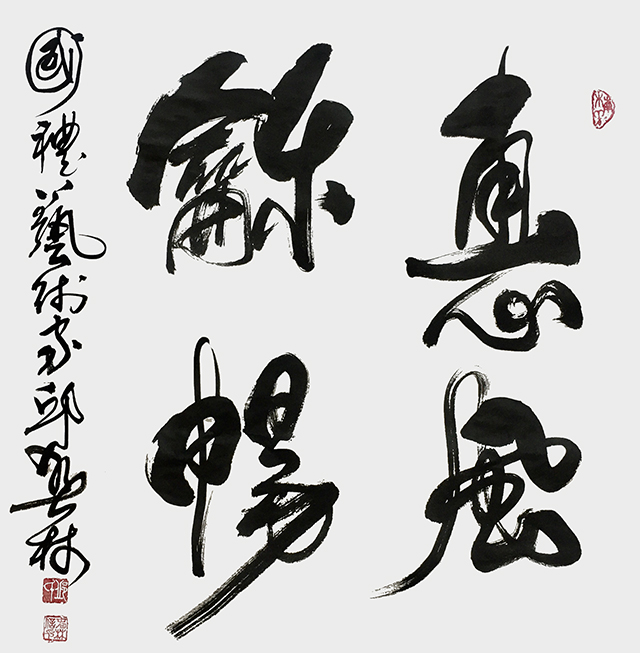 惠風
龢暢
國禮藝術家邱興林